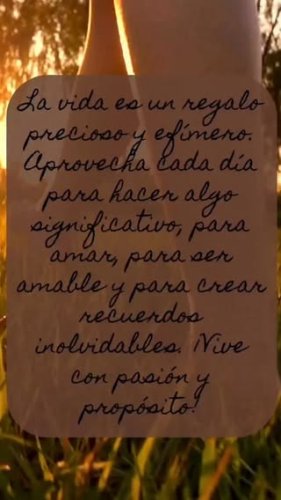 La vida es un regalo
precioso y efímero.
Aprovecha cada día
para hacer algo
significativo, para
amar, para ser
amable y para crear
recuerdos
inolvidables. ¡Vive
con pasión y
propósito!